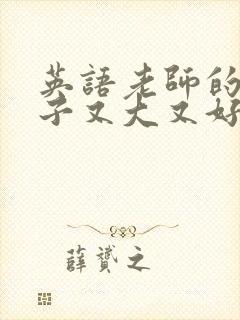 英語老師的
子又大又好
薛贇之